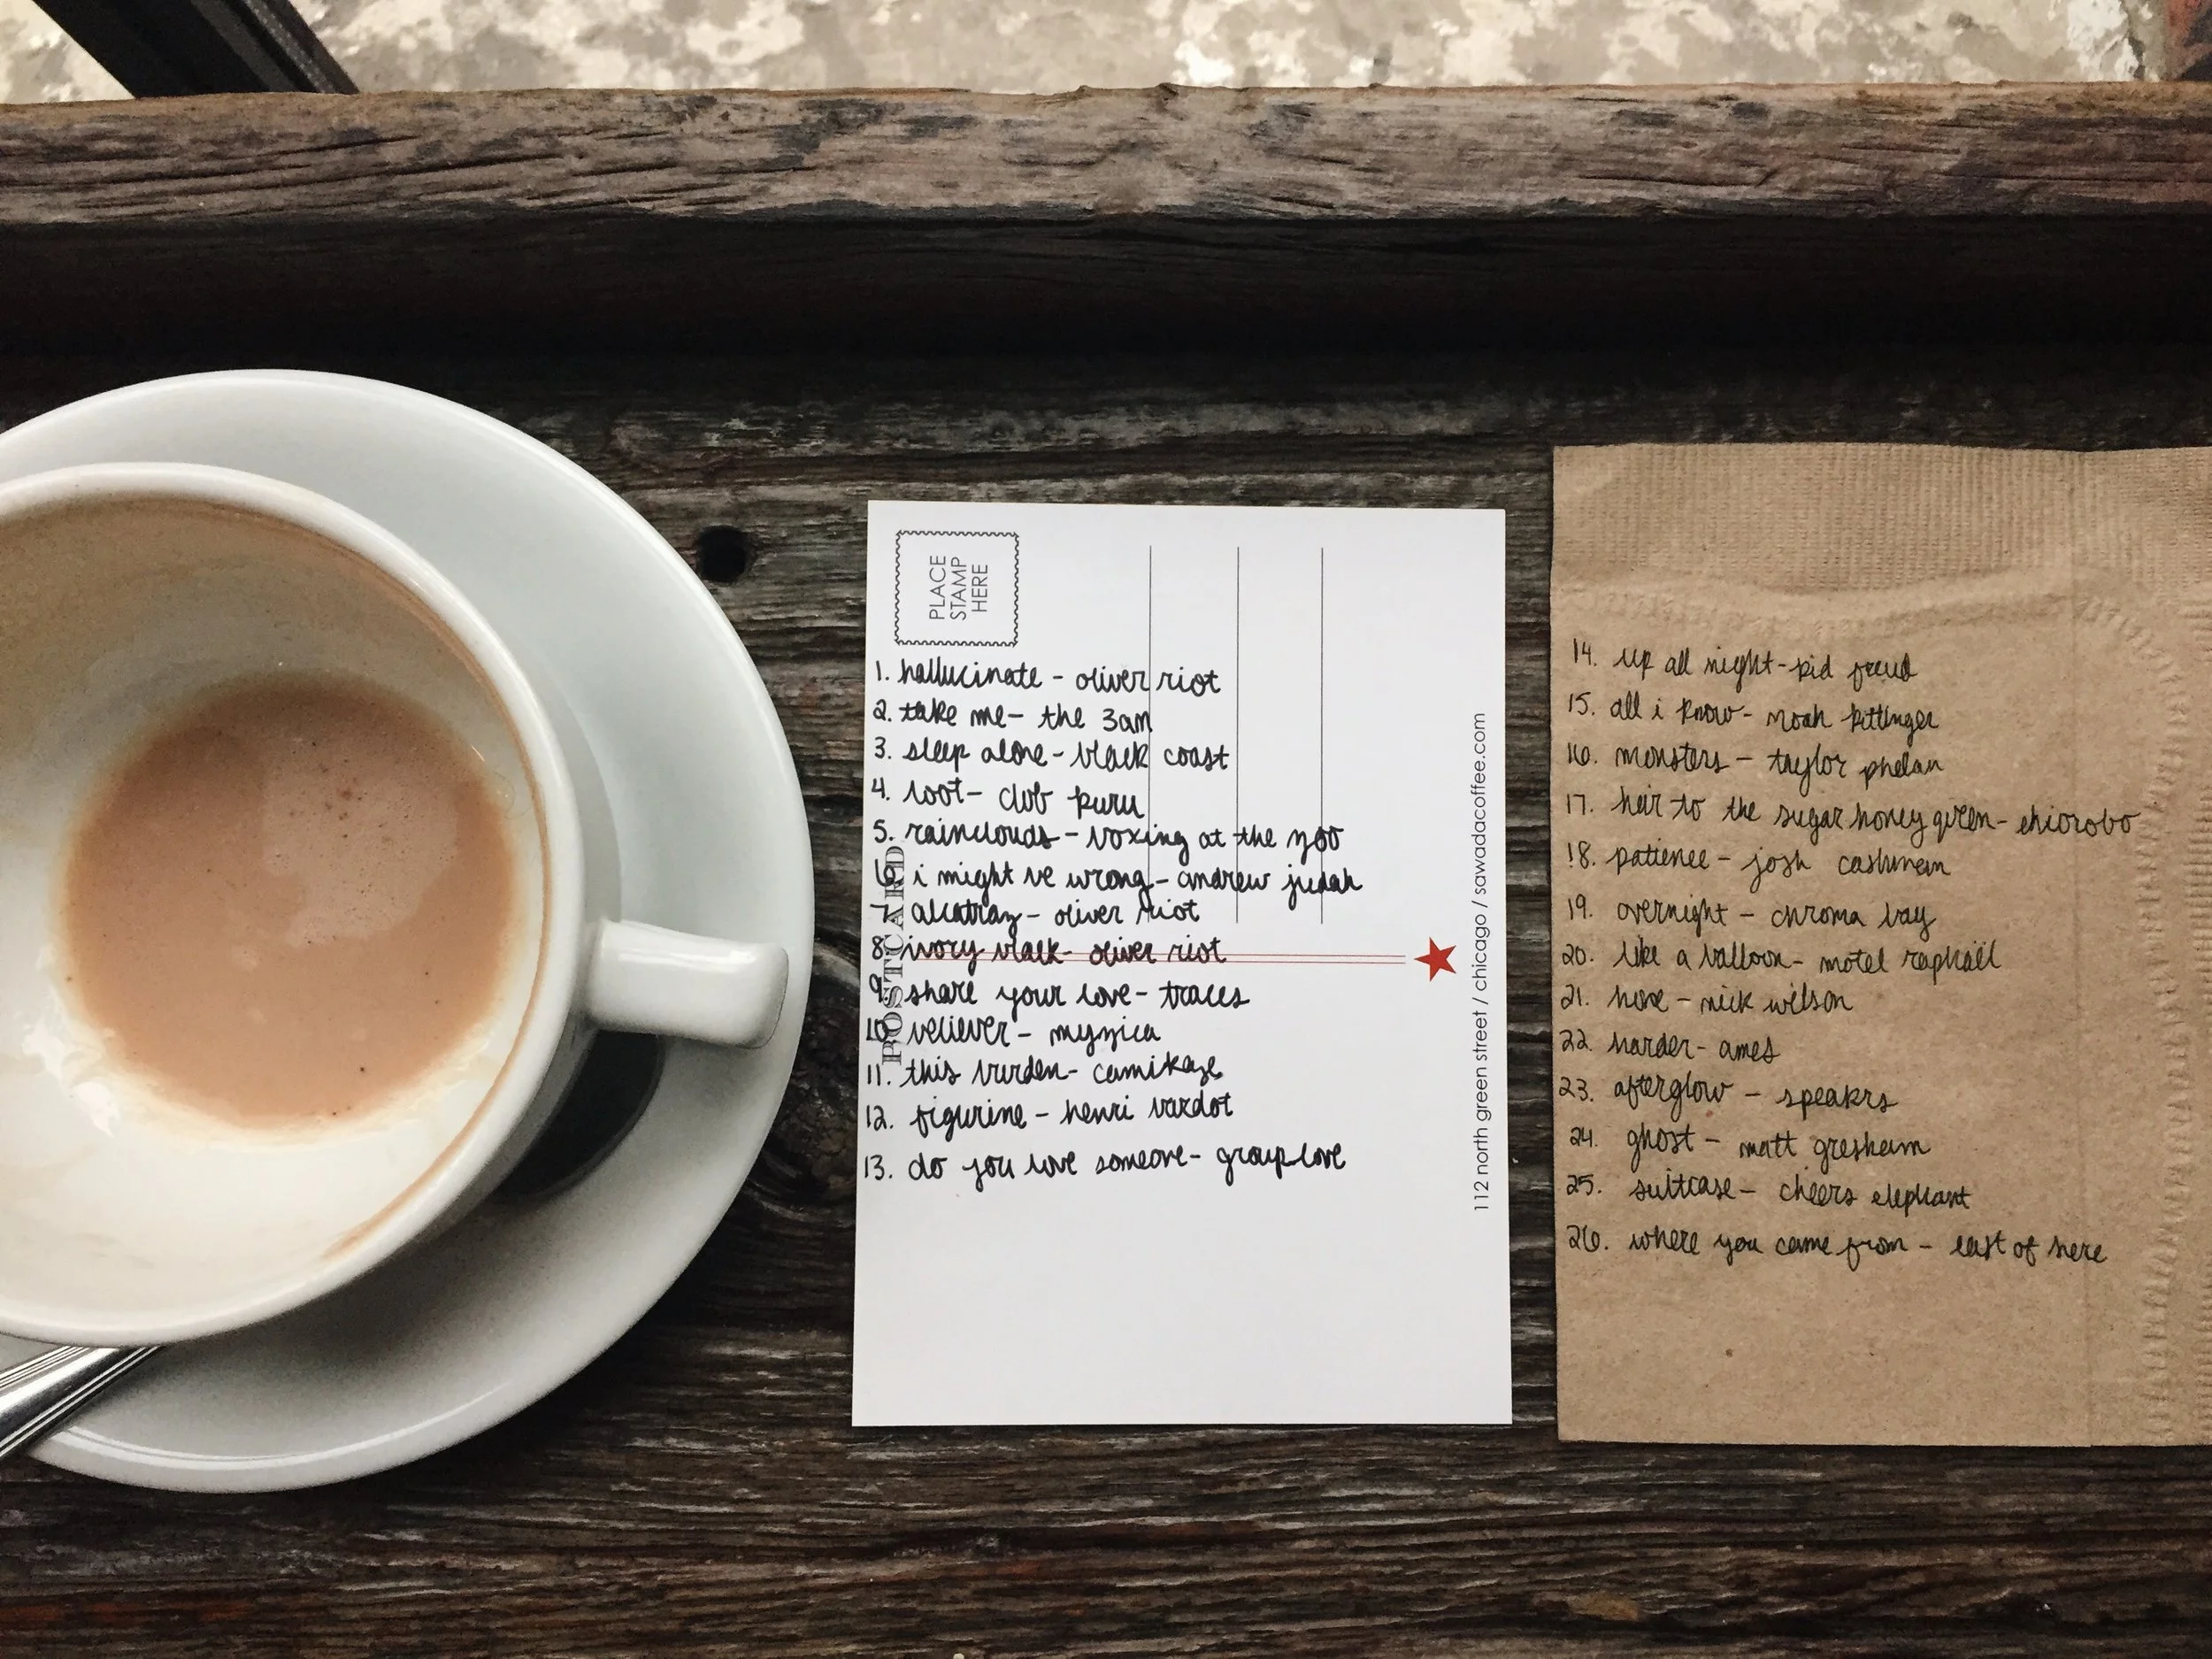 PLACE
STAMP
HERE
POSTCARD
1. hallucinate - oliver riot
2. take me - the 3am
3. sleep alone - black coast
4. loot - club kuru
5. rainclouds - boxing at the zoo
6. i might be wrong - andrew judah
7. alcatraz - oliver riot
8. ivory black - oliver riot
9. share your love - traces
10. believer - myzica
11. this burden - camikaze
12. figurine - henri bardot
13. do you love someone - grouplove
112 north green street / chicago / sawadacoffee.com
14. up all night - kid freud
15. all i know - noah kittinger
16. monsters - taylor phelan
17. heir to the sugar honey queen - ehiorobo
18. patience - josh cashman
19. overnight - chroma bay
20. like a balloon - motel raphaël
21. hoxe - nick wilson
22. harder - ames
23. afterglow - speakrs
24. ghost - matt gresham
25. suitcase - cheers elephant
26. where you came from - east of here